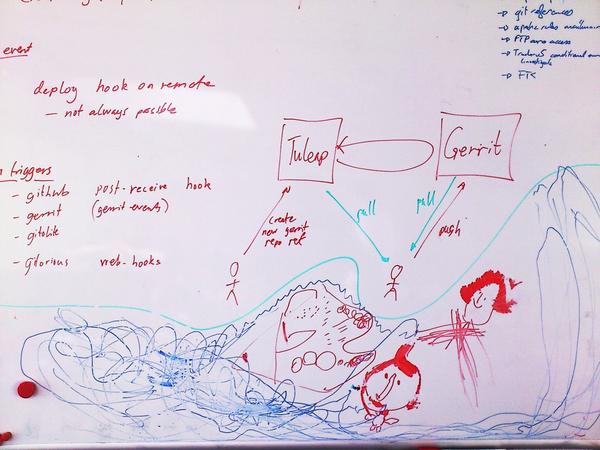 git references
event
FTP auro access
deploy hook on remote
- not always possible
Tuleap
Gerrit
triggers
- github post-receive hook
- gerrit (gerrit-events)
- gitolite
- gitorious web-hooks
create
new gerrit
repo ref
pull
pull
push